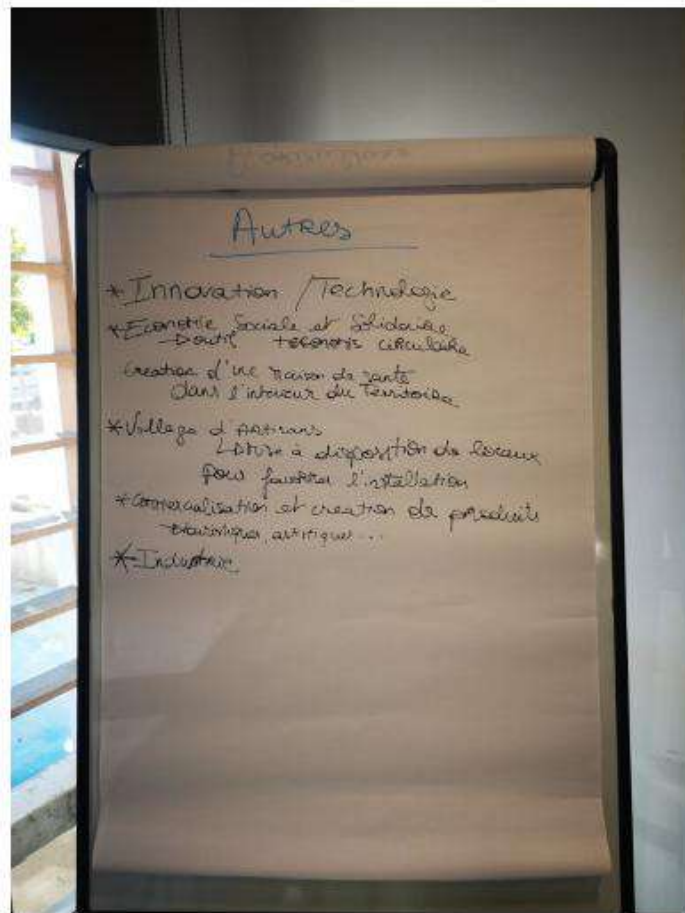 Autres
* Innovation / Technologie
* Economie Sociale et Solidaire
circulaire
Creation d'une maison de santé
dans l'interieur du Territoire
* Village d'Artisans
Mise à disposition de locaux
pour favoriser l'installation
* Commercialisation et creation de produits
touristiques, artistiques ...
* Industrie